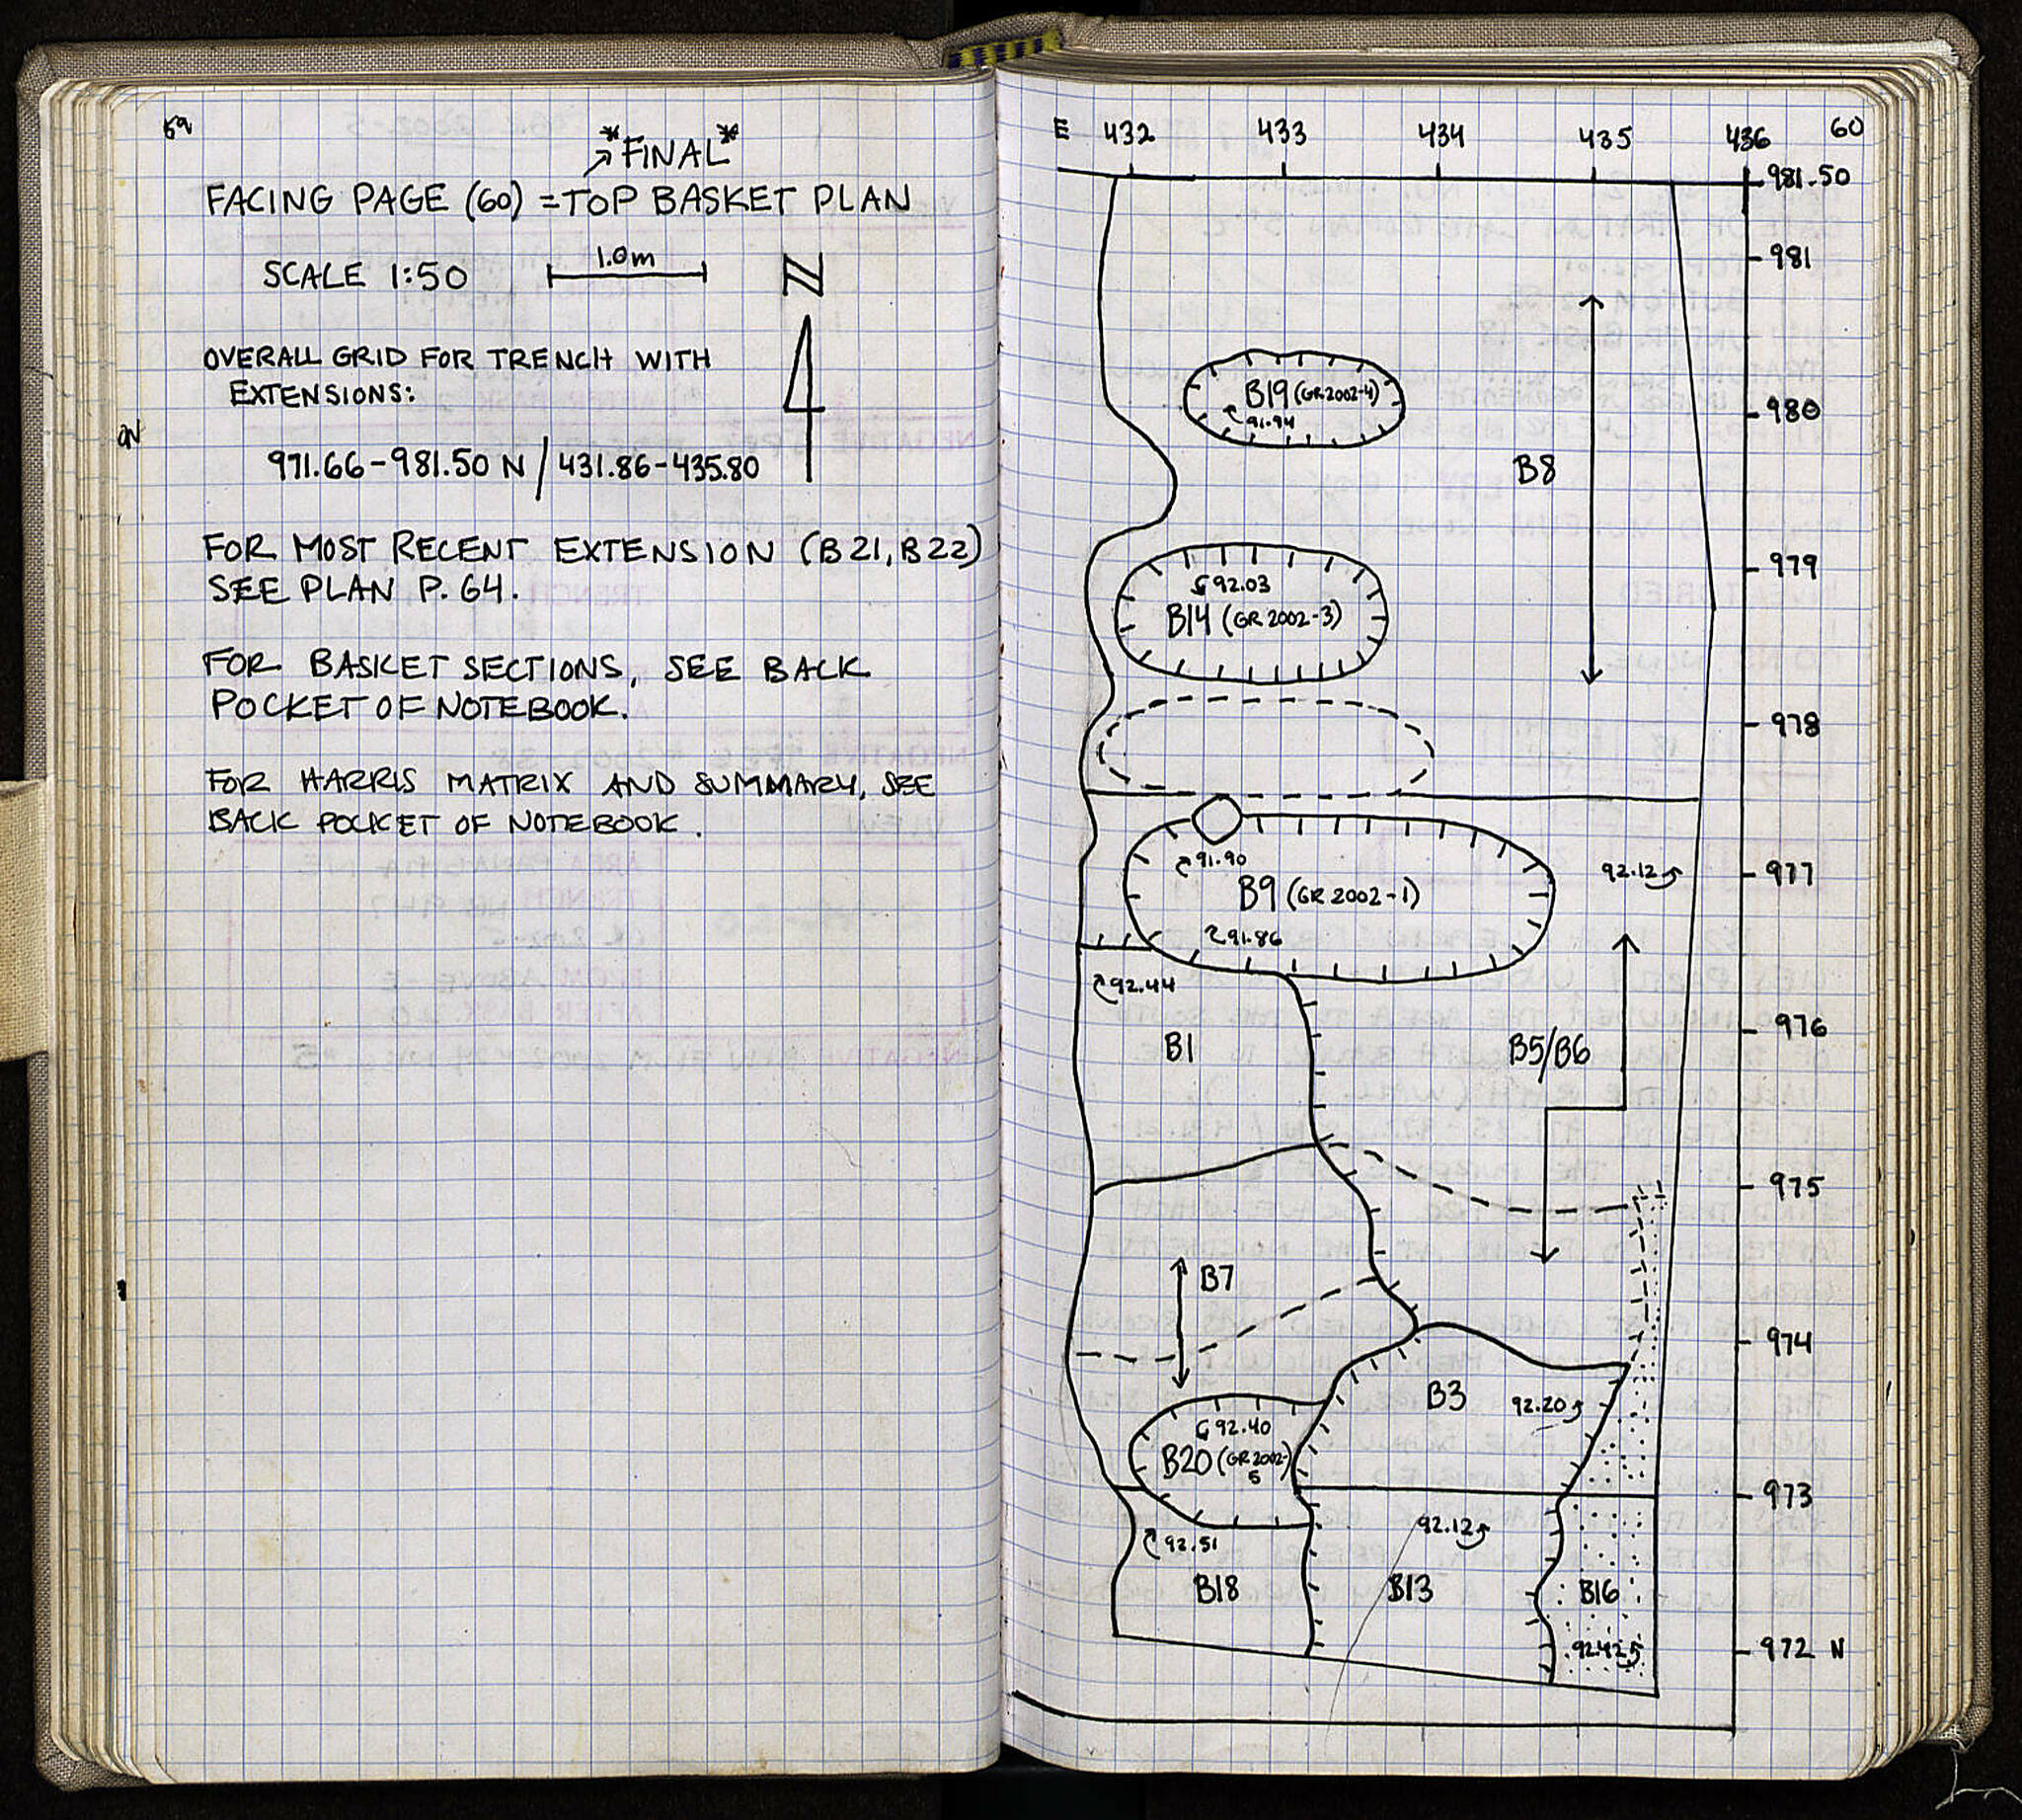 59
*FINAL*
FACING PAGE (60) = TOP BASKET PLAN
SCALE 1:50
1.0m
N
OVERALL GRID FOR TRENCH WITH
EXTENSIONS:
971.66-981.50 N / 431.86-435.80
FOR MOST RECENT EXTENSION (B21, B22)
SEE PLAN P. 64.
FOR BASKET SECTIONS, SEE BACK
POCKET OF NOTEBOOK.
FOR HARRIS MATRIX AND SUMMARY, SEE
BACK POCKET OF NOTEBOOK.
E 432 433 434 435 436 60
981.50
981
B19 (GR 2002-4)
91.94
980
B8
979
92.03
B14 (GR 2002-3)
978
91.90
92.12
977
B9 (GR 2002-1)
91.86
92.44
976
B1
B5/B6
975
B7
974
B3
92.20
92.40
B20 (GR 2002-
5
973
92.12
92.51
B18
B13
B16
92.42
972 N